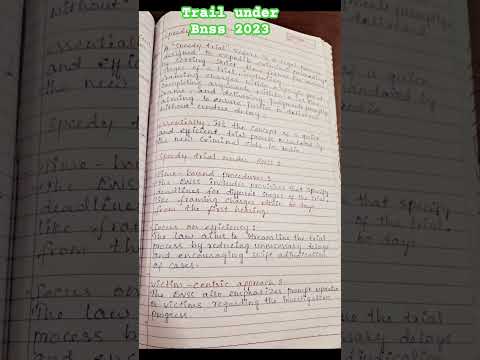 Trail under
Bnss 2023
Speedy
A "speedy trial" refers to a legal proceeding
designed to expedite the judicial process
by setting strict time frames for various
stages of a trial, including
framing charges within 60 days,
completing arguments within a set time
frame, and delivering judgments promptly
aiming to ensure justice is delivered
without undue delay.
Essentially, it's the concept of a quick
and efficient trial process mandated by
the new criminal code in India
Speedy trial under BNSS :
Time-bound procedures :
The BNSS includes provisions that specify
deadlines for different stages of the trial,
like framing charges within 60 days
from the first hearing.
Focus on efficiency :
The law aims to streamline the trial
process by reducing unnecessary delays
and encouraging swift adjudication
of cases.
Victim-centric approach :
The BNSS also emphasizes prompt updates
to victims regarding the investigation
progress